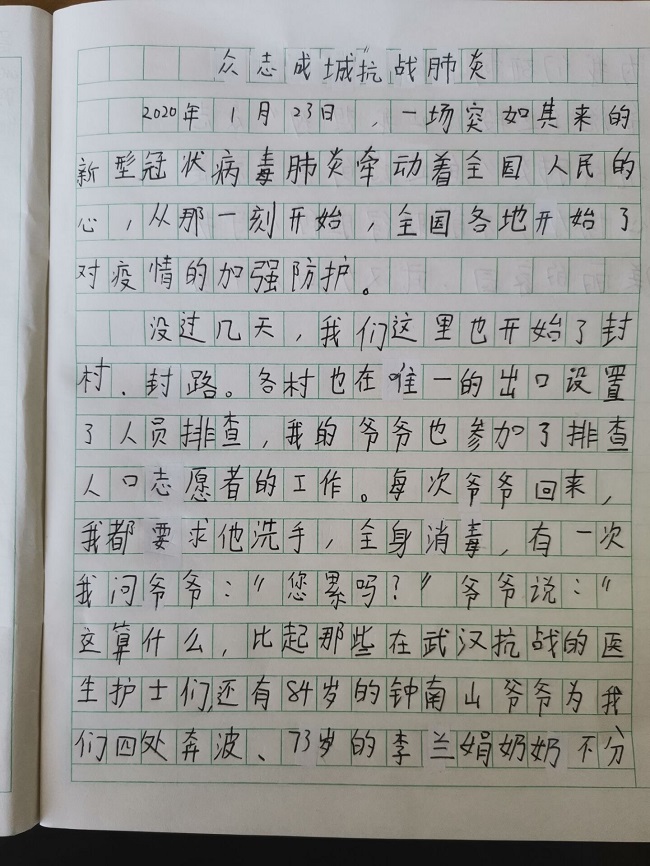 众志成城"抗战肺炎
2020年1月23日，一场突如其来的
新型冠状病毒肺炎牵动着全国人民的
心，从那一刻开始，全国各地开始了
对疫情的加强防护。
没过几天，我们这里也开始了封
村、封路。各村也在唯一的出口设置
了人员排查，我的爷爷也参加了排查
人口志愿者的工作。每次爷爷回来，
我都要求他洗手，全身消毒，有一次
我问爷爷："您累吗？"爷爷说："
这算什么，比起那些在武汉抗战的医
生护士们,还有84岁的钟南山爷爷为我
们四处奔波、73岁的李兰娟奶奶不分